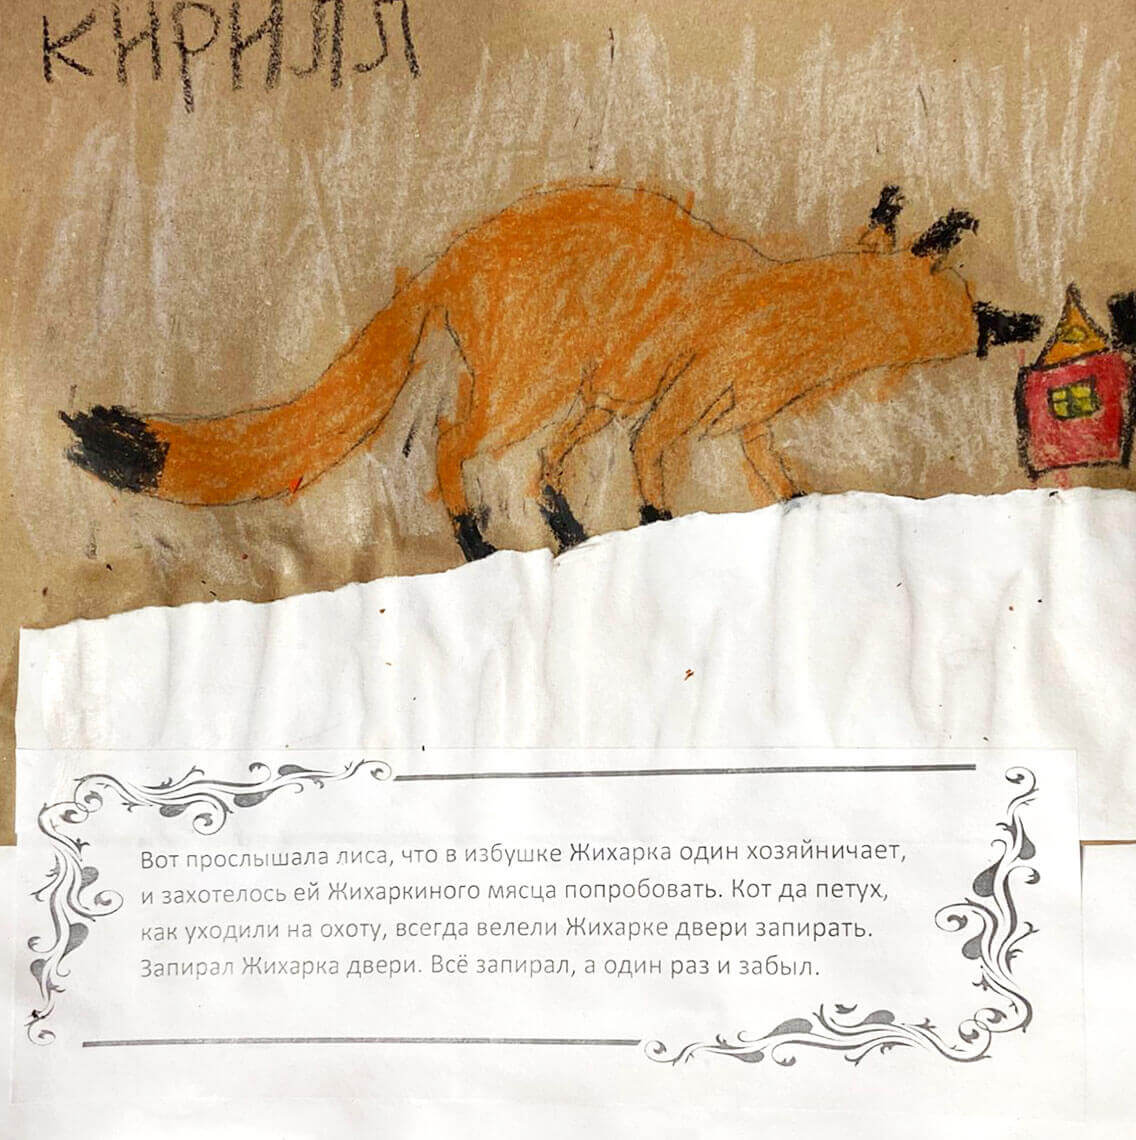 КИРИЛЛ
Вот прослышала лиса, что в избушке Жихарка один хозяйничает,
и захотелось ей Жихаркиного мясца попробовать. Кот да петух,
как уходили на охоту, всегда велели Жихарке двери запирать.
Запирал Жихарка двери. Всё запирал, а один раз и забыл.